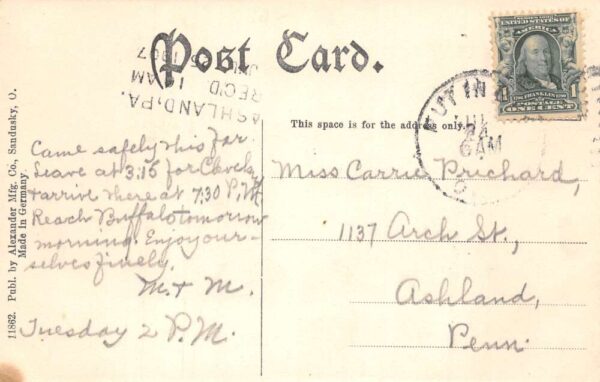 Post Card.
ASHLAND, PA.
REC'D
1907
This space is for the address only.
PUT IN
24
6 AM
UNITED STATES OF
AMERICA
1
FRANKLIN
POSTAGE
ONE CENT
Came safely thus far.
Leave at 3:15 for Cleveland
& arrive there at 7:30 P.M.
Reach Buffalo tomorrow
morning. Enjoy your-
selves finely.
M. & M.
Tuesday 2 P.M.
Miss Carrie Prichard,
1137 Arch St.,
Ashland,
Penn.
11862. Publ. by Alexander Mfg. Co., Sandusky, O.
Made in Germany